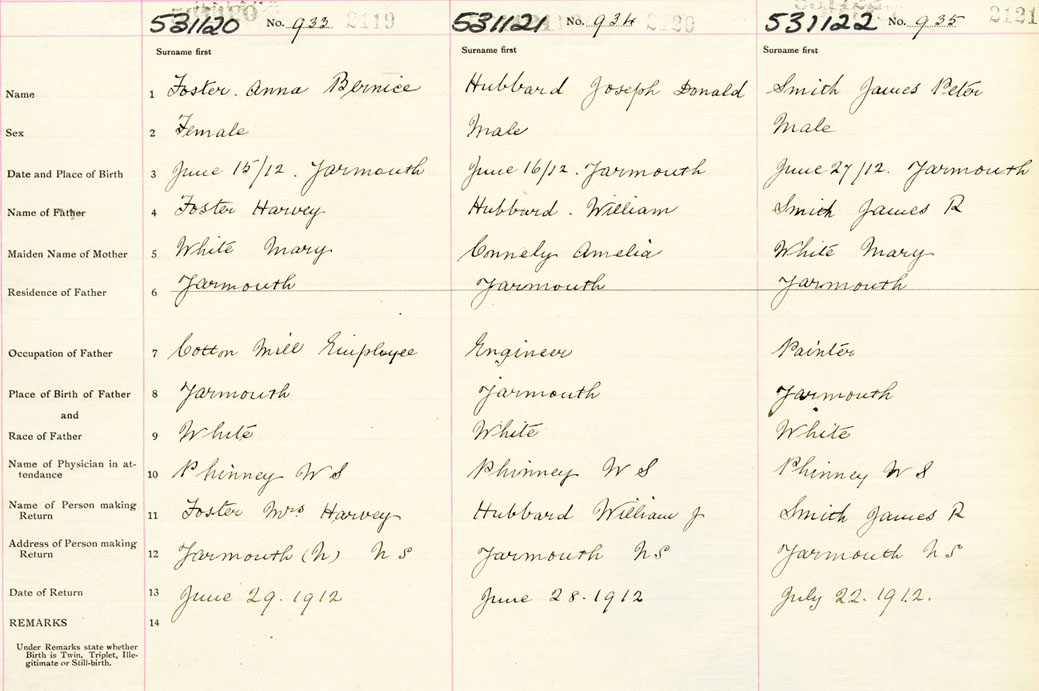 531120 No. 933 2119 531121 No. 934 2120 531122 No. 935 2121
Surname first Surname first Surname first
Name 1 Foster. Anna Bernice Hubbard Joseph Donald Smith James Peter
Sex 2 Female Male Male
Date and Place of Birth 3 June 15/12. Yarmouth June 16/12. Yarmouth June 27/12. Yarmouth
Name of Father 4 Foster Harvey Hubbard. William Smith James R
Maiden Name of Mother 5 White Mary Connely Amelia White Mary
Residence of Father 6 Yarmouth Yarmouth Yarmouth
Occupation of Father 7 Cotton Mill Employee Engineer Painter
Place of Birth of Father 8 Yarmouth Yarmouth Yarmouth
and
Race of Father 9 White White White
Name of Physician in at-
tendance 10 Phinney W S Phinney W S Phinney W S
Name of Person making
Return 11 Foster Mrs Harvey Hubbard William J Smith James R
Address of Person making
Return 12 Yarmouth (N) N S Yarmouth N S Yarmouth N S
Date of Return 13 June 29. 1912 June 28. 1912 July 22. 1912.
REMARKS 14
Under Remarks state whether
Birth is Twin, Triplet, Ille-
gitimate or Still-birth.